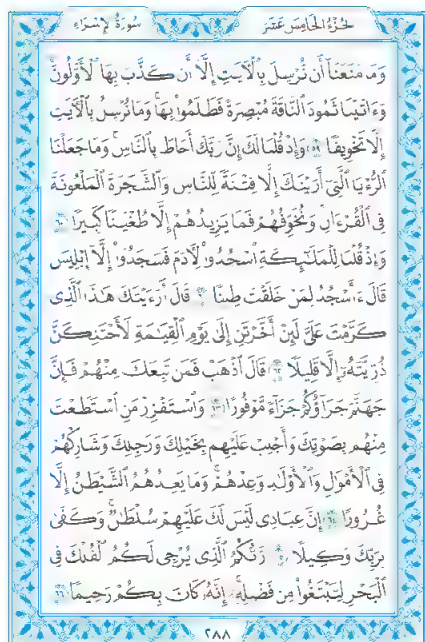 الجزء الخامس عشر سورة الإسراء
وَمَا مَنَعَنَا أَن نُّرْسِلَ بِالْآيَتِ إِلَّا أَن كَذَّبَ بِهَا الْأَوَّلُونَ
وَءَاتَيْنَا ثَمُودَ النَّاقَةَ مُبْصِرَةً فَظَلَمُوا بِهَا وَمَا نُرْسِلُ بِالْآيَتِ
إِلَّا تَخْوِيفًا ٥٩ وَإِذْ قُلْنَا لَكَ إِنَّ رَبَّكَ أَحَاطَ بِالنَّاسِ وَمَا جَعَلْنَا
الرُّءْيَا الَّتِي أَرَيْنَكَ إِلَّا فِتْنَةً لِّلنَّاسِ وَالشَّجَرَةَ الْمَلْعُونَةَ
فِي الْقُرْءَانِ وَنُخَوِّفُهُمْ فَمَا يَزِيدُهُمْ إِلَّا طُغْيَنًا كَبِيرًا ٦٠
وَإِذْ قُلْنَا لِلْمَلَئِكَةِ اسْجُدُوا لِآدَمَ فَسَجَدُوا إِلَّا إِبْلِيسَ
قَالَ ءَأَسْجُدُ لِمَنْ خَلَقْتَ طِينًا ٦١ قَالَ أَرَءَيْتَكَ هَذَا الَّذِي
كَرَّمْتَ عَلَيَّ لَئِنْ أَخَّرْتَنِ إِلَى يَوْمِ الْقِيَمَةِ لَأَحْتَنِكَنَّ
ذُرِّيَّتَهُ إِلَّا قَلِيلًا ٦٢ قَالَ اذْهَبْ فَمَن تَبِعَكَ مِنْهُمْ فَإِنَّ
جَهَنَّمَ جَزَاؤُكُمْ جَزَاءً مَّوْفُورًا ٦٣ وَاسْتَفْزِزْ مَنِ اسْتَطَعْتَ
مِنْهُم بِصَوْتِكَ وَأَجْلِبْ عَلَيْهِم بِخَيْلِكَ وَرَجِلِكَ وَشَارِكْهُمْ
فِي الْأَمْوَلِ وَالْأَوْلَدِ وَعِدْهُمْ وَمَا يَعِدُهُمُ الشَّيْطَنُ إِلَّا
غُرُورًا ٦٤ إِنَّ عِبَادِي لَيْسَ لَكَ عَلَيْهِمْ سُلْطَنٌ وَكَفَى
بِرَبِّكَ وَكِيلًا ٦٥ رَّبُّكُمُ الَّذِي يُزْجِي لَكُمُ الْفُلْكَ فِي
الْبَحْرِ لِتَبْتَغُوا مِن فَضْلِهِ إِنَّهُ كَانَ بِكُمْ رَحِيمًا ٦٦
٢٨٨